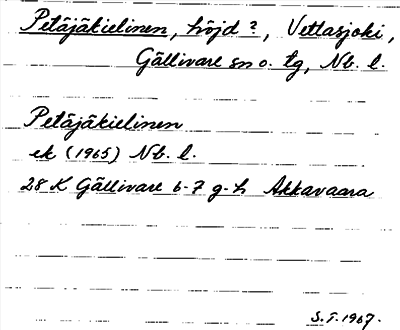 Petäjäkielinen, höjd ?, Vettasjoki,
Gällivare sn o. tg, Nb. l.
Petäjäkielinen
ek (1965) Nb. l.
28 K Gällivare 6-7 g-h Akkavaara
S.T. 1967.